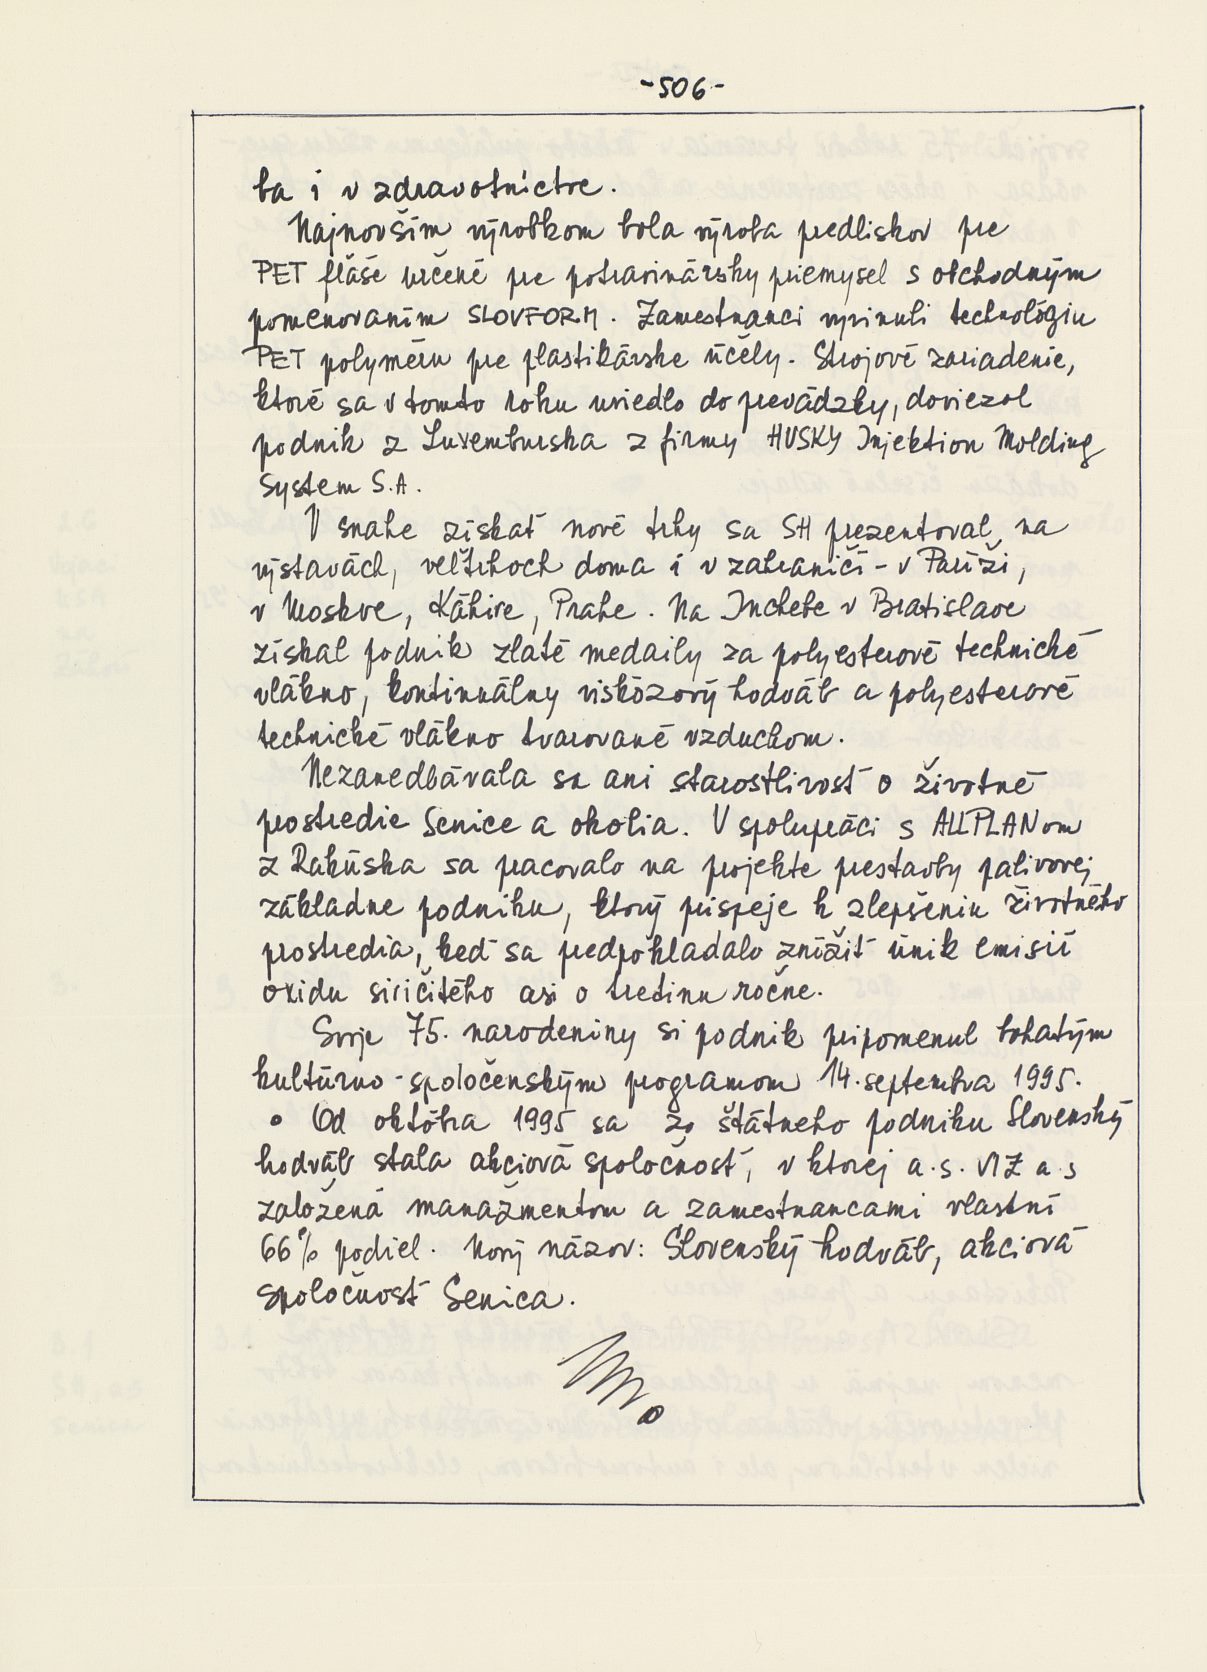 -506-
ba i v zdravotníctve.
Najnovším výrobkom bola výroba predliskov pre
PET fľaše určené pre potravinársky priemysel s obchodným
pomenovaním SLOVFORM. Zamestnanci vyvinuli technológiu
PET polyméru pre plastikárske účely. Strojové zariadenie,
ktoré sa v tomto roku uviedlo do prevádzky, doviezol
podnik z Luxemburska z firmy HUSKY Injektion Molding
System S.A.
V snahe získať nové trhy sa SH prezentoval na
výstavách, veľtrhoch doma i v zahraničí - v Paríži,
v Moskve, Káhire, Prahe. Na Inchebe v Bratislave
získal podnik zlaté medaily za polyesterové technické
vlákno, kontinuálny viskózový hodváb a polyesterové
technické vlákno tvarované vzduchom.
Nezanedbávala sa ani starostlivosť o životné
prostredie Senice a okolia. V spolupráci s ALLPLANom
z Rakúska sa pracovalo na projekte prestavby palivovej
základne podniku, ktorý prispeje k zlepšeniu životného
prostredia, keď sa predpokladalo znížiť únik emisií
oxidu siričitého asi o tretinu ročne.
Svoje 75. narodeniny si podnik pripomenul bohatým
kultúrno-spoločenským programom 14. septembra 1995.
• Od októbra 1995 sa zo štátneho podniku Slovenský
hodváb stala akciová spoločnosť, v ktorej a.s. VIZ a.s
založená manažmentom a zamestnancami vlastní
66% podiel. Nový názov: Slovenský hodváb, akciová
spoločnosť Senica.